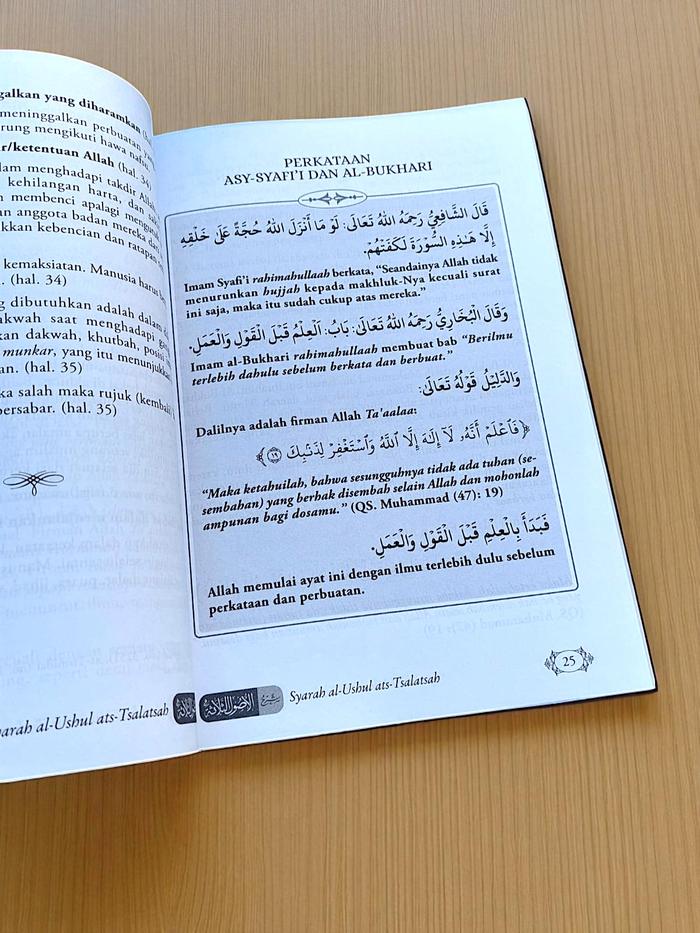 galkan yang diharamkan
meninggalkan perbuatan
rung mengikuti hawa
r/ketentuan Allah (hal. 34)
lam menghadapi takdir
kehilangan harta, dan
membenci apalagi
an anggota badan mereka
kkan kebencian dan ratapan
kemaksiatan. Manusia harus
. (hal. 34)
g dibutuhkan adalah dalam
akwah saat menghadapi
kan dakwah, khutbah, posisi
munkar, yang itu menunjukkan
an. (hal. 35)
ka salah maka rujuk (kembali
bersabar. (hal. 35)
arah al-Ushul ats-Tsalatsah
PERKATAAN
ASY-SYAFI'I DAN AL-BUKHARI
قَالَ الشَّافِعِيُّ رَحِمَهُ اللهُ تَعَالَى: لَوْ مَا أَنْزَلَ اللهُ حُجَّةً عَلَى خَلْقِهِ
إِلَّا هَذِهِ السُّوْرَةَ لَكَفَتْهُمْ.
Imam Syafi'i rahimahullaah berkata, “Seandainya Allah tidak
menurunkan hujjah kepada makhluk-Nya kecuali surat
ini saja, maka itu sudah cukup atas mereka.”
وَقَالَ الْبُخَارِيُّ رَحِمَهُ اللهُ تَعَالَى: بَابُ: اَلْعِلْمُ قَبْلَ الْقَوْلِ وَالْعَمَلِ.
Imam al-Bukhari rahimahullaah membuat bab “Berilmu
terlebih dahulu sebelum berkata dan berbuat.”
وَالدَّلِيْلُ قَوْلُهُ تَعَالَى:
Dalilnya adalah firman Allah Ta'aalaa:
﴿فَٱعْلَمْ أَنَّهُۥ لَآ إِلَٰهَ إِلَّا ٱللَّهُ وَٱسْتَغْفِرْ لِذَنۢبِكَ ۝١٩﴾
“Maka ketahuilah, bahwa sesungguhnya tidak ada tuhan (se-
sembahan) yang berhak disembah selain Allah dan mohonlah
ampunan bagi dosamu.” (QS. Muhammad (47): 19)
فَبَدَأَ بِالْعِلْمِ قَبْلَ الْقَوْلِ وَالْعَمَلِ.
Allah memulai ayat ini dengan ilmu terlebih dulu sebelum
perkataan dan perbuatan.
25
شرح الأصول الثلاثة Syarah al-Ushul ats-Tsalatsah